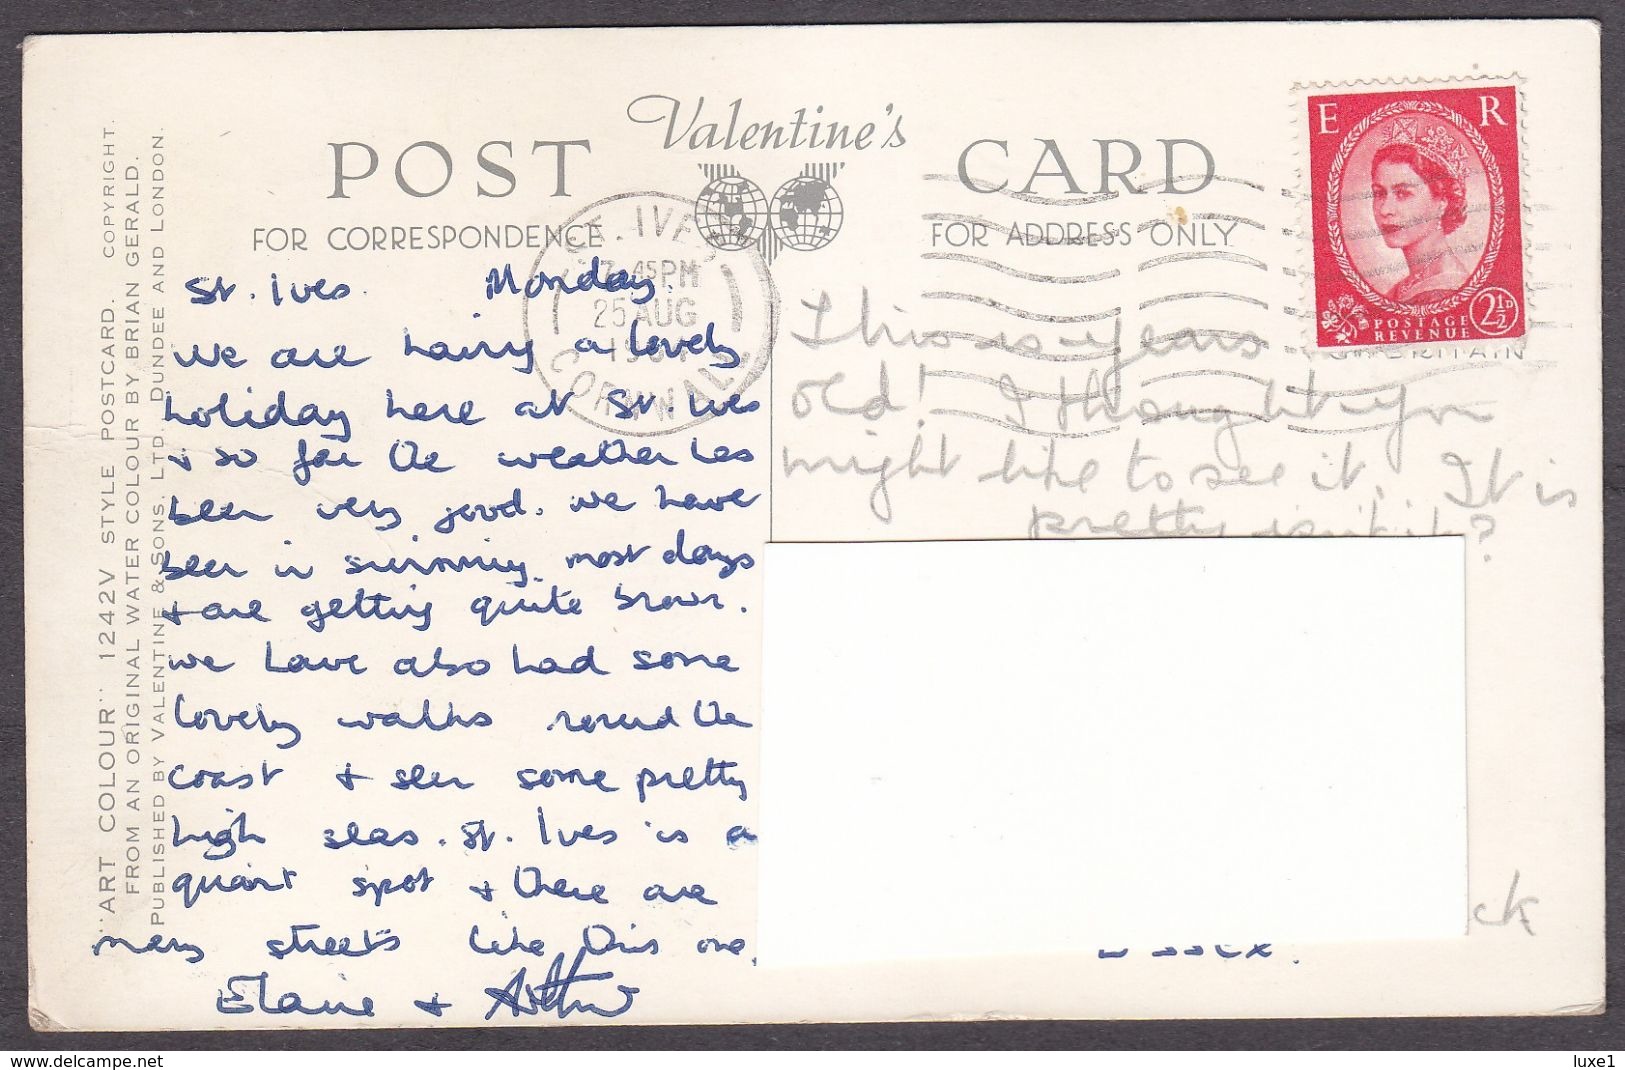 POST Valentine's CARD
FOR CORRESPONDENCE
FOR ADDRESS ONLY
E R
2½D
POSTAGE
REVENUE
ST. IVES
7.45PM
25 AUG
CORNWALL
"ART COLOUR" 1242V STYLE POSTCARD. COPYRIGHT.
FROM AN ORIGINAL WATER COLOUR BY BRIAN GERALD.
PUBLISHED BY VALENTINE & SONS, LTD., DUNDEE AND LONDON.
St. Ives. Monday.
We are having a lovely
holiday here at St. Ives
+ so far the weather has
been very good. We have
been in swimming most days
+ are getting quite brown.
We have also had some
lovely walks round the
coast + seen some pretty
high seas. St. Ives is a
quaint spot + there are
many streets like this one.
Elaine + Arthur
This is years
old! I thought you
might like to see it. It is
pretty isn't it?
ck
delcampe.net
luxe1